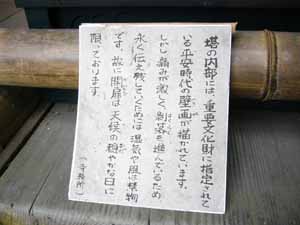 塔の内部には、重要文化財に指定されて
いる平安時代の壁画が描かれています。
しかし痛みが激しく、剥落も進んでいるため
はくらく
永く伝え残していくためには湿気や風は禁物
です。故に開扉は天候の穏やかな日に
限っております。
(寺務所)